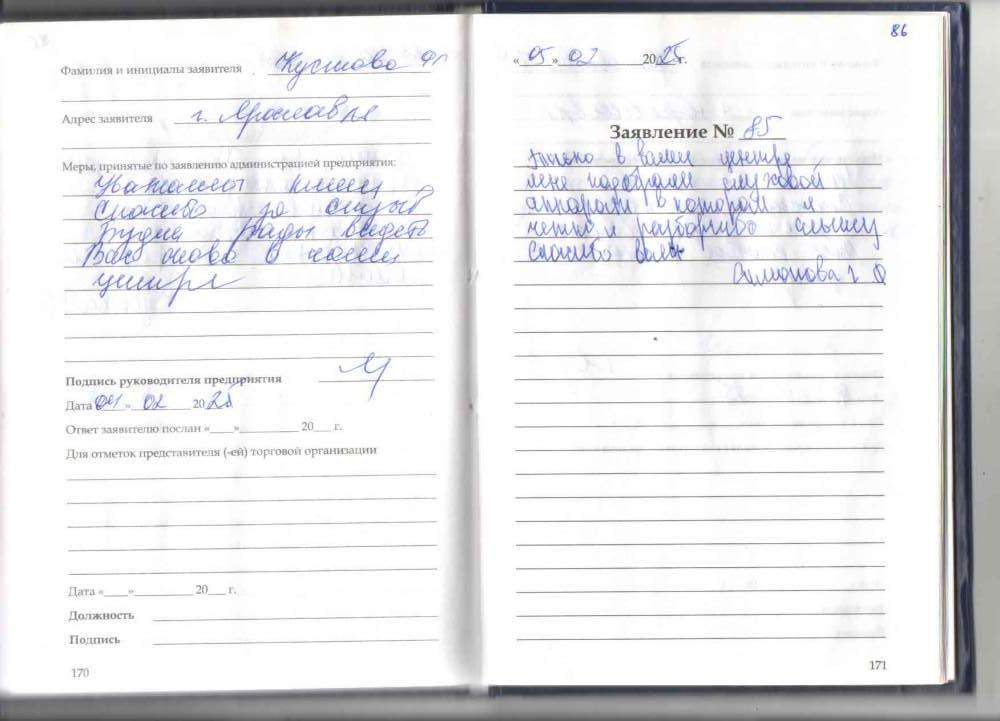 Фамилия и инициалы заявителя Кустова
Адрес заявителя г. Ярославль
Меры, принятые по заявлению администрацией предприятия:
Уважаемый клиент
Спасибо за отзыв
Будем рады видеть
Вас снова в нашем
центре
Подпись руководителя предприятия
Дата «04» 02 2025
Ответ заявителю послан «___»__________ 20___ г.
Для отметок представителя (-ей) торговой организации
Дата «____»__________ 20___ г.
Должность
Подпись
170
86
«05» 02 2025г.
Заявление № 85
только в вашем центре
мне подобрали слуховой
аппарат в котором я
четко и разборчиво слышу
спасибо вам
Симонова Г О
171